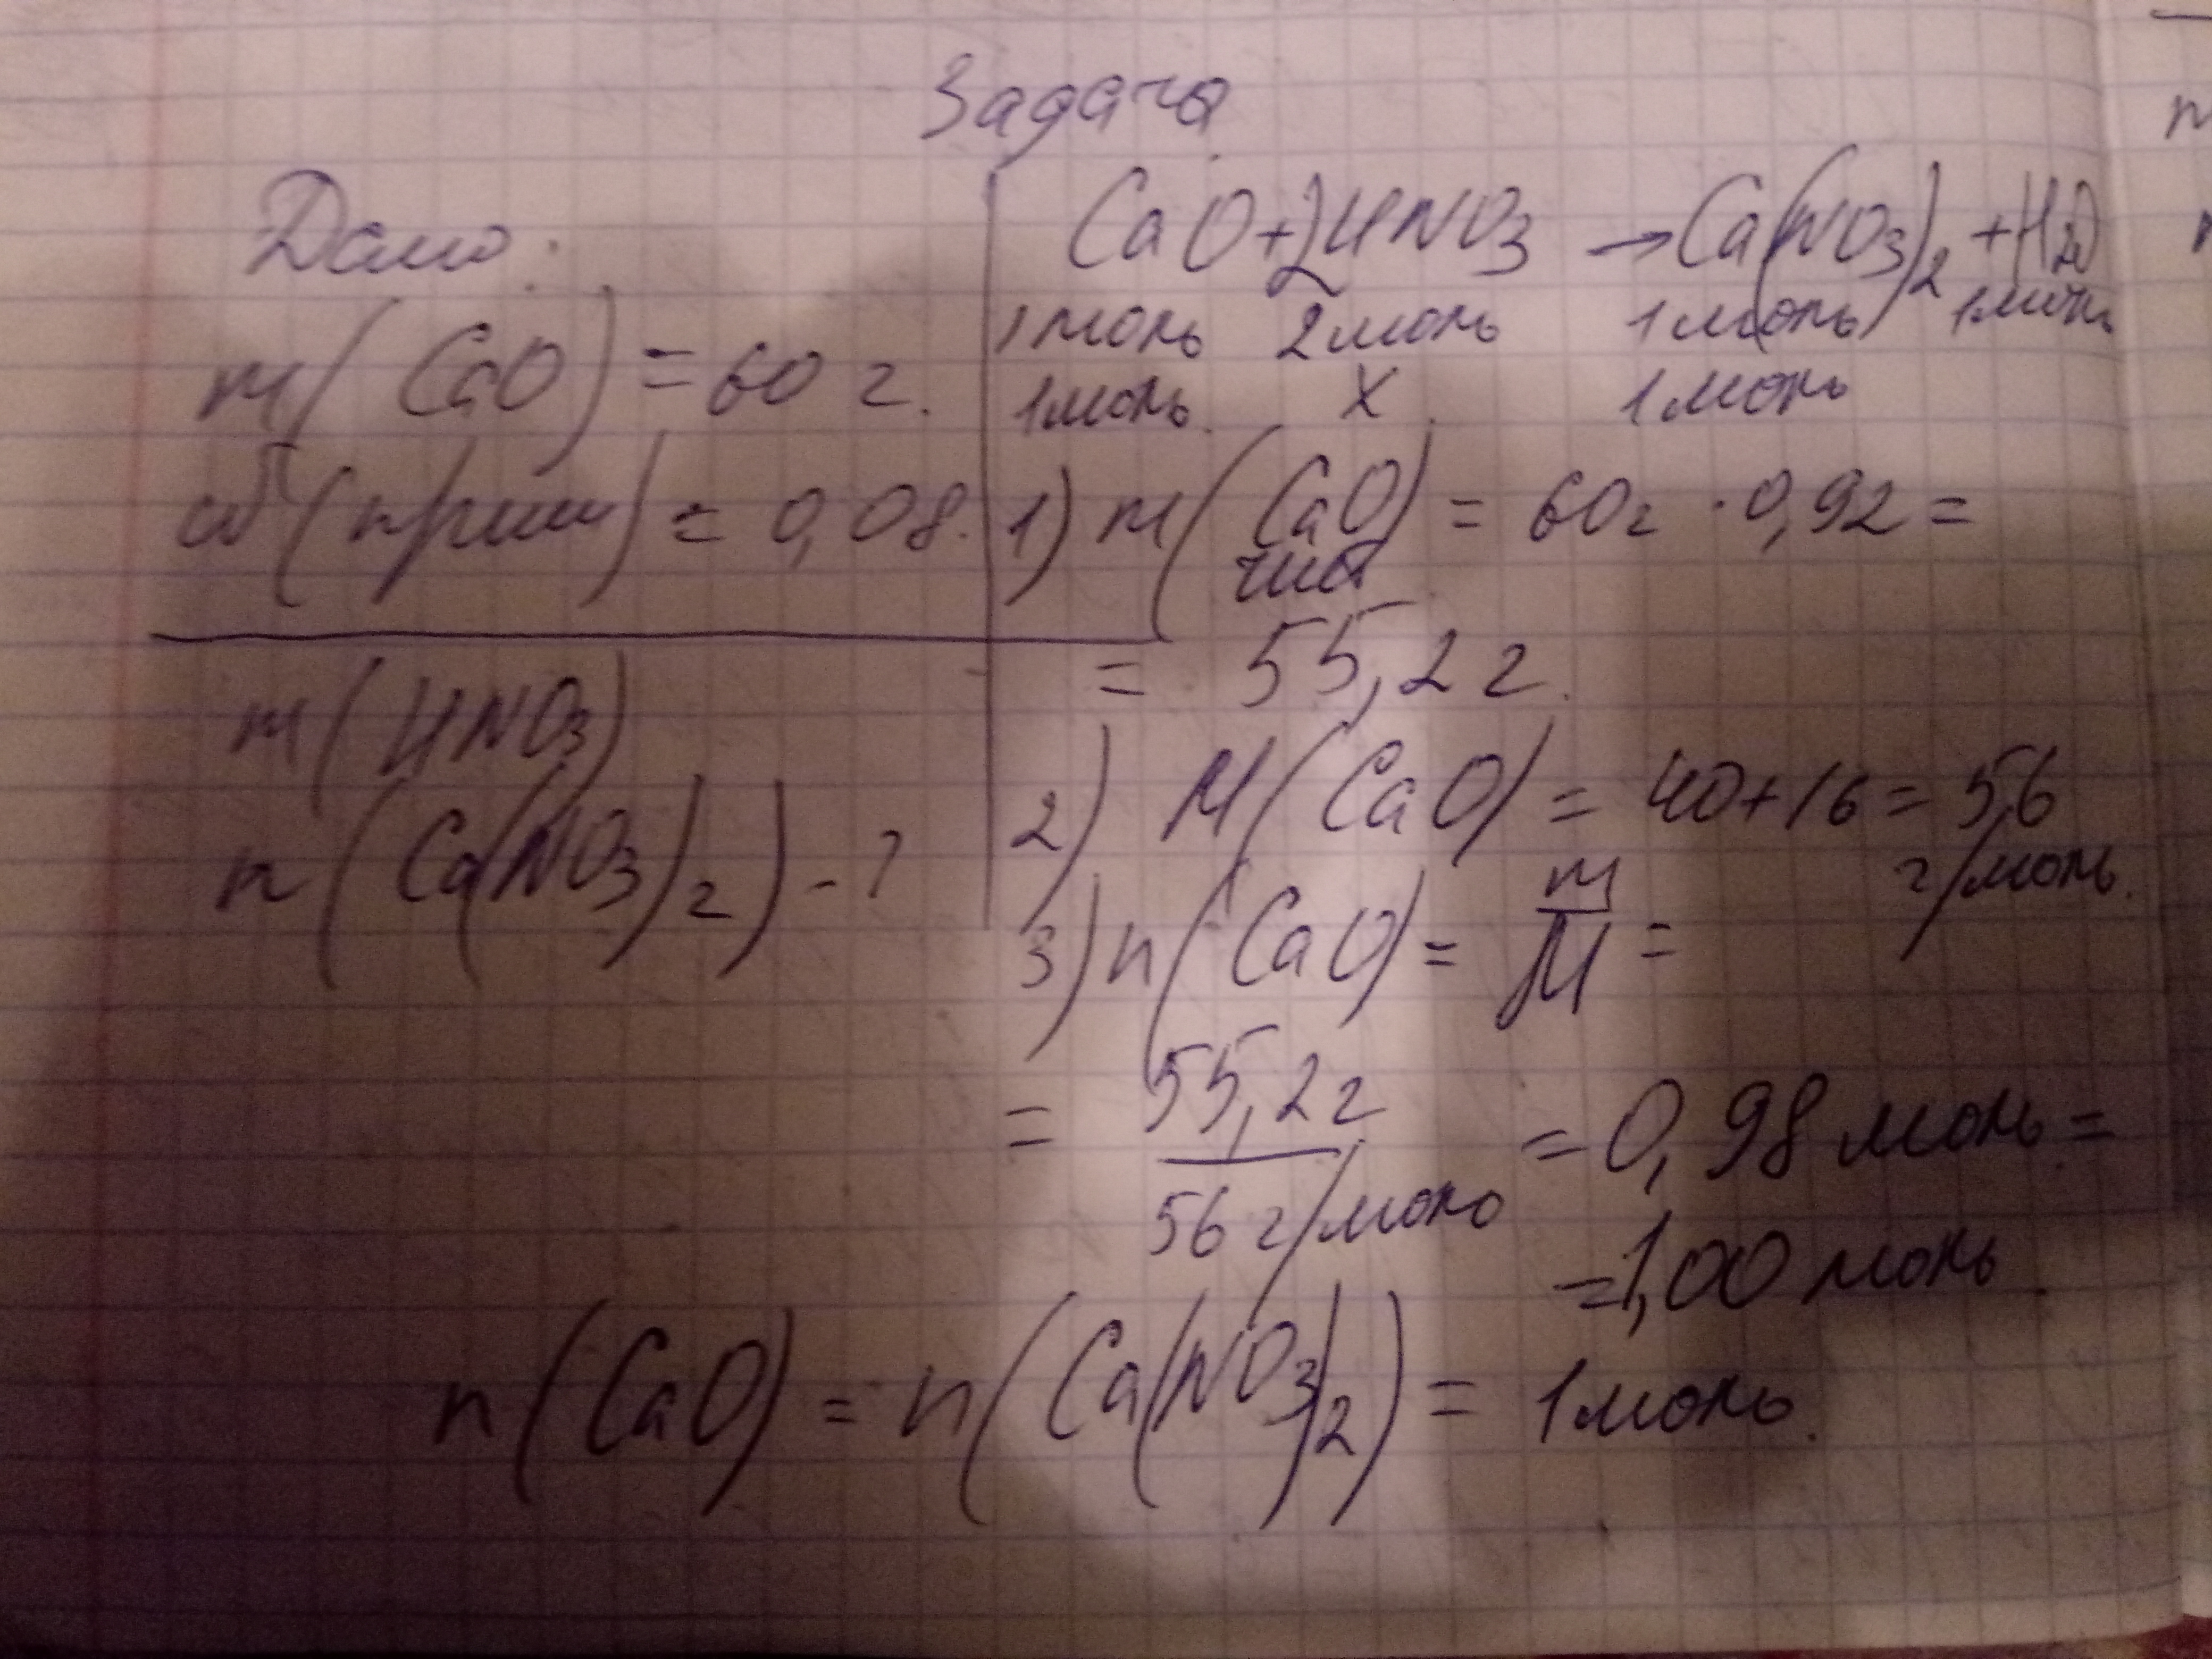 Задача
Дано:
m(CaO) = 60 г.
ω(прим) = 0,08.
m(HNO3)
n(Ca(NO3)2) - ?
CaO + 2HNO3 → Ca(NO3)2 + H2O
1моль 2моль 1моль 1моль
1моль. X. 1моль
1) m(CaO) = 60г · 0,92 =
чист
= 55,2 г.
2) M(CaO) = 40+16 = 56
г/моль.
3) n(CaO) = m/M =
= 55,2г / 56 г/моль = 0,98 моль =
=1,00 моль
n(CaO) = n(Ca(NO3)2) = 1моль.